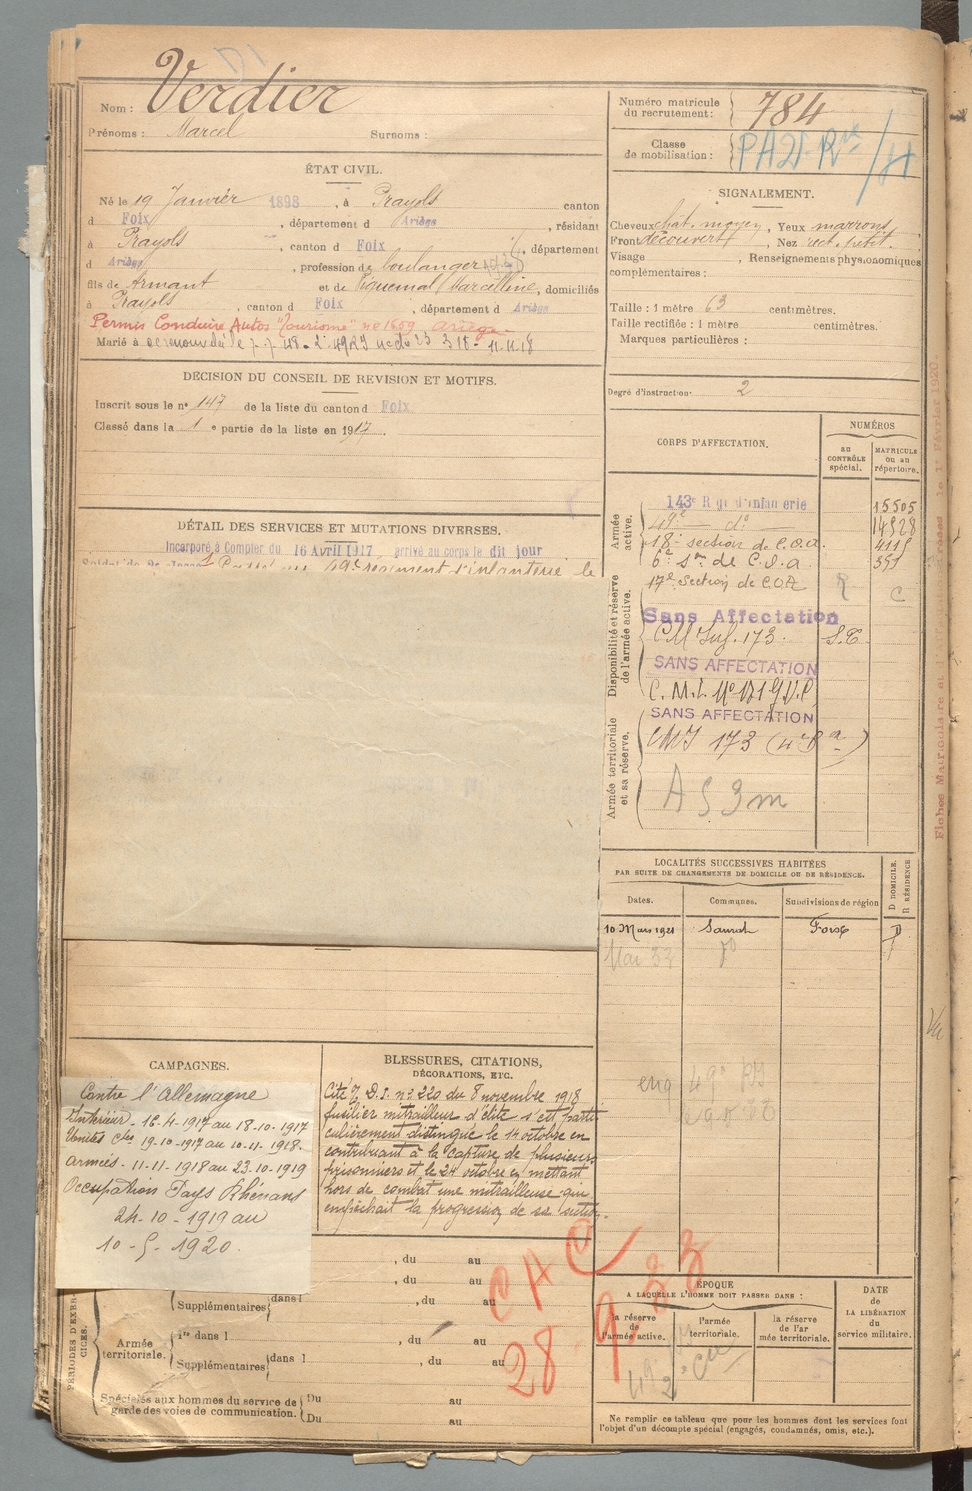 Nom : Verdier
Prénoms : Marcel Surnoms :
Numéro matricule du recrutement : 784
Classe de mobilisation :
ÉTAT CIVIL.
Né le 19 Janvier 1898, à Prayols canton
d Foix, département d Ariège, résidant
à Prayols, canton d Foix, département
d Ariège, profession de boulanger
fils de Armant et de Piquemal Marcelline, domiciliés
à Prayols, canton d Foix, département d Ariège
Permis Conduire Autos "Tourisme" n° 1659 Ariège
Marié à
SIGNALEMENT.
Cheveux chat. moyen, Yeux marrons,
Front découvert, Nez rect. petit.
Visage , Renseignements physionomiques
complémentaires :
Taille : 1 mètre 63 centimètres.
Taille rectifiée : 1 mètre centimètres.
Marques particulières :
Degré d'instruction : 2
DÉCISION DU CONSEIL DE REVISION ET MOTIFS.
Inscrit sous le n° 147 de la liste du canton d Foix
Classé dans la 1 e partie de la liste en 1917.
DÉTAIL DES SERVICES ET MUTATIONS DIVERSES.
Incorporé à Compter du 16 Avril 1917 arrivé au corps le dit jour
49e régiment d'infanterie le
CORPS D'AFFECTATION.
NUMÉROS
au CONTRÔLE spécial.
MATRICULE ou au répertoire.
Armée active.
143e R gt d'infanterie 15505
49e do 14928
18e section de C.O.A. 4115
6e Son de C.O.A. 351
Disponibilité et réserve de l'armée active.
17e Section de C.O.A. C
Sans Affectation
CM Inf. 173 S.C.
SANS AFFECTATION
C.M.I. N° 171
SANS AFFECTATION
Armée territoriale et sa réserve.
CMI 173
LOCALITÉS SUCCESSIVES HABITÉES
PAR SUITE DE CHANGEMENTS DE DOMICILE OU DE RÉSIDENCE.
Dates. Communes. Subdivisions de région
D DOMICILE.
R RÉSIDENCE
10 Mars 1921 Saurat Foix D
Mai 32 do
CAMPAGNES.
Contre l'Allemagne
Intérieur - 16.4.1917 au 18.10.1917
Unités Ctes 19.10.1917 au 10.11.1918.
Armées - 11.11.1918 au 23.10.1919
Occupation Pays Rhénans
24.10.1919 au
10.5.1920.
BLESSURES, CITATIONS,
DÉCORATIONS, ETC.
Cité O/ D.I. n° 220 du 8 novembre 1918
fusilier mitrailleur d'élite s'est parti
culièrement distingué le 14 octobre en
contribuant à la capture de plusieurs
prisonniers et le 24 octobre en mettant
hors de combat une mitrailleuse qui
empêchait la progression de sa section.
PÉRIODES D'EXERCICES.
, du au
, du au
Supplémentaires dans l , du au
Armée territoriale.
1re dans l , du au
Supplémentaires dans l , du au
Spéciales aux hommes du service de garde des voies de communication.
Du au
Du au
CAC
28 9 33
ÉPOQUE
A LAQUELLE L'HOMME DOIT PASSER DANS :
la réserve de l'armée active.
l'armée territoriale.
la réserve de l'armée territoriale.
DATE de LA LIBÉRATION du service militaire.
Ne remplir ce tableau que pour les hommes dont les services font
l'objet d'un décompte spécial (engagés, condamnés, omis, etc.).